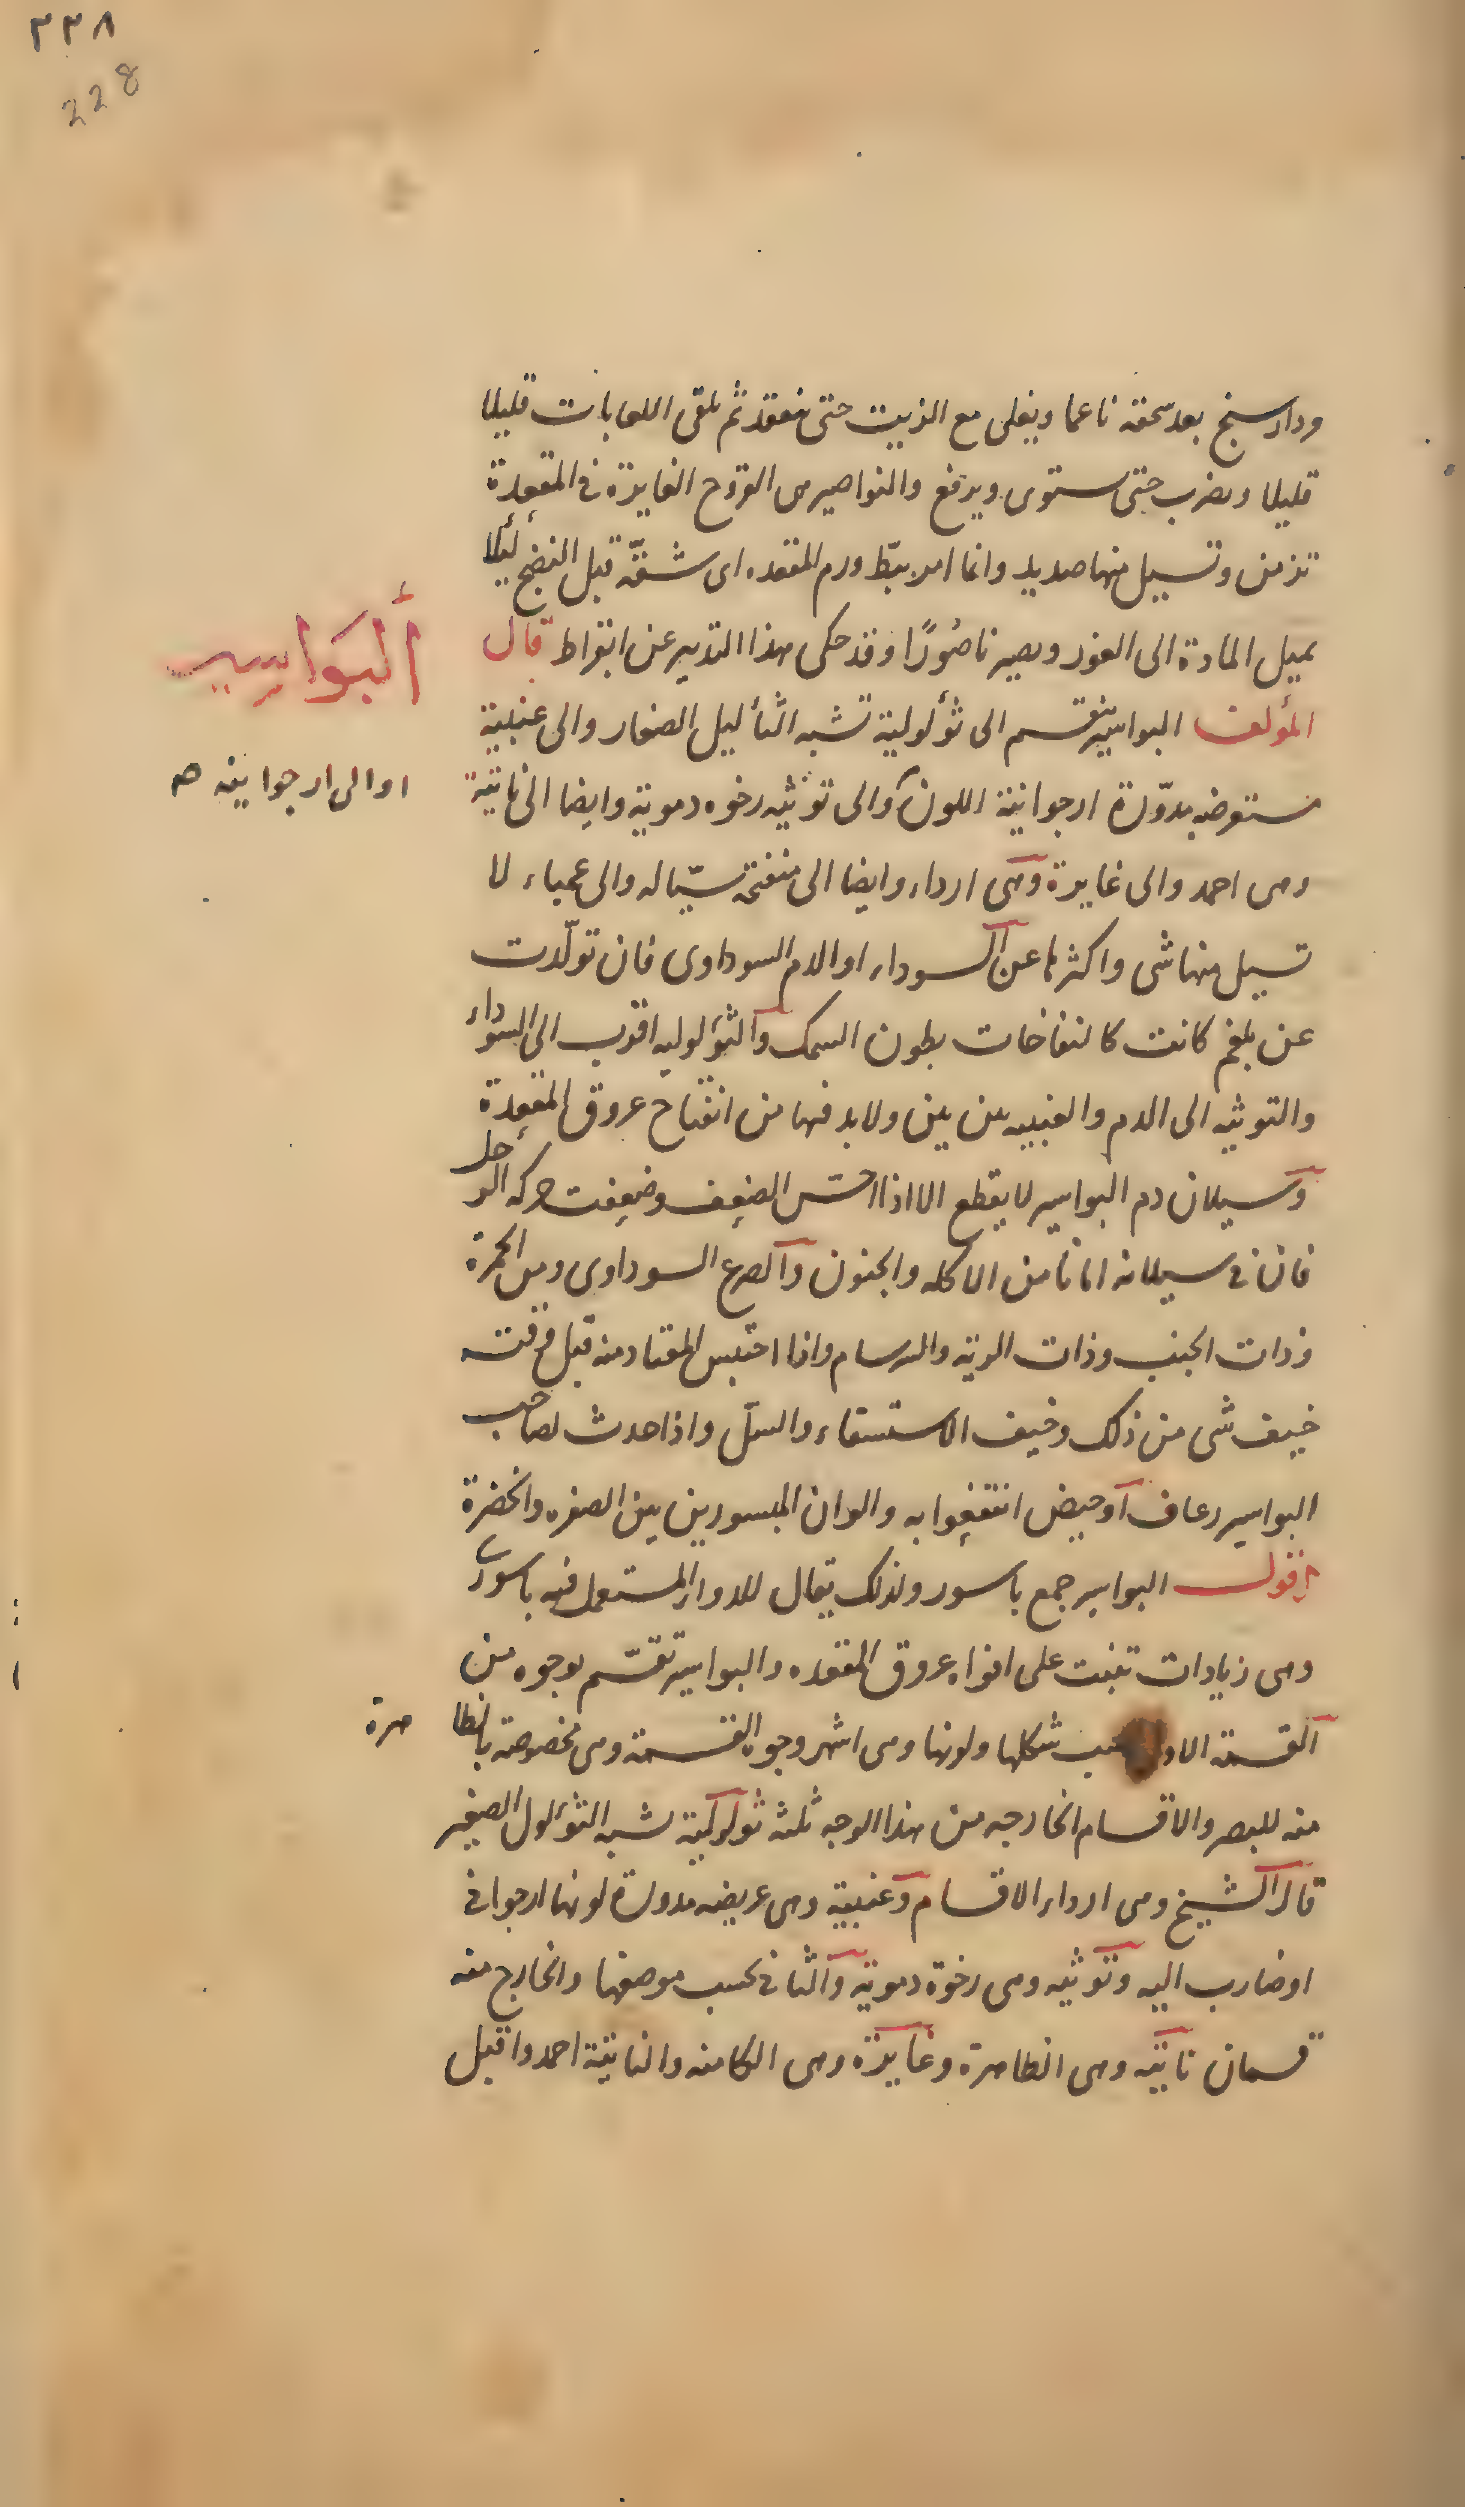 ٢٢٨
228
مرداسنج بعد سحقه ناعما ويغلى مع الزيت حتى ينعقد ثم يلقى اللعابات قليلا
قليلا ويضرب حتى يستوى ويرفع والنواصير هى القروح الغايرة فى المقعدة
تزمن وتسيل منها صديد وانما امر ببطّ ورم المقعده اى شقّه قبل النضج لئلا
يميل المادة الى الغور ويصير ناصُورًا وقد حكى هذا التدبير عن ابقراط قال
ألبَواسِير
المؤلف البواسير ينقسم الى ثؤلولية تشبه الثآليل الصغار والى عنبية
مستعرضه مدوّرة ارجوانية اللون والى توثيه رخوه دموية وايضا الى ناتية
او الى ارجوانيه صح
وهى احمد والى غايرة وهى ارداء وايضا الى منفتحة سيّاله والى عمياء لا
تسيل منها شى واكثرها عن السوداء او الدم السوداوى فان تولّدت
عن بلغم كانت كالنفاخات بطون السمك والثؤلوليه اقرب الى السوداء
والتوثيه الى الدم والعنبيه بين بين ولا بد فيها من انفتاح عروق المقعدة
وسيلان دم البواسير لا يقطع الا اذا احسّ الضعف وضعفت حركه الرجل
فان فى سيلانه امانا من الاكله والجنون والصرع السوداوى ومن الحمرة
وذات الجنب وذات الرية والسرسام واذا احتبس المعتاد منه قبل وقته
خيف شى من ذلك وخيف الاستسقاء والسلّ واذا حدث لصاحب
البواسير رعاف او حيض انتفعوا به والوان المبسورين بين الصفره والخضرة
اقول البواسير جمع باسور ولذلك يقال للدواء المستعمل فيه باسورى
وهى زيادات تنبت على افواه عروق المقعده والبواسير تقسّم بوجوه من
القسمة الاول بحسب شكلها ولونها وهى اشهر وجوه القسمة وهى مخصوصة بالظا هرة
منه للبصر والاقسام الخارجه من هذا الوجه ثلثه ثولولية تشبه الثؤلول الصغير
قال الشيخ وهى ارداء الاقسام وعنبية وهى عريضه مدورة لونها ارجوانى
او ضارب اليه وتوثيه وهى رخوة دموية والثانى بحسب موضعها والخارج منه
قسمان ناتيه وهى الظاهرة وغايرة وهى الكامنه والناتية احمد واقبل